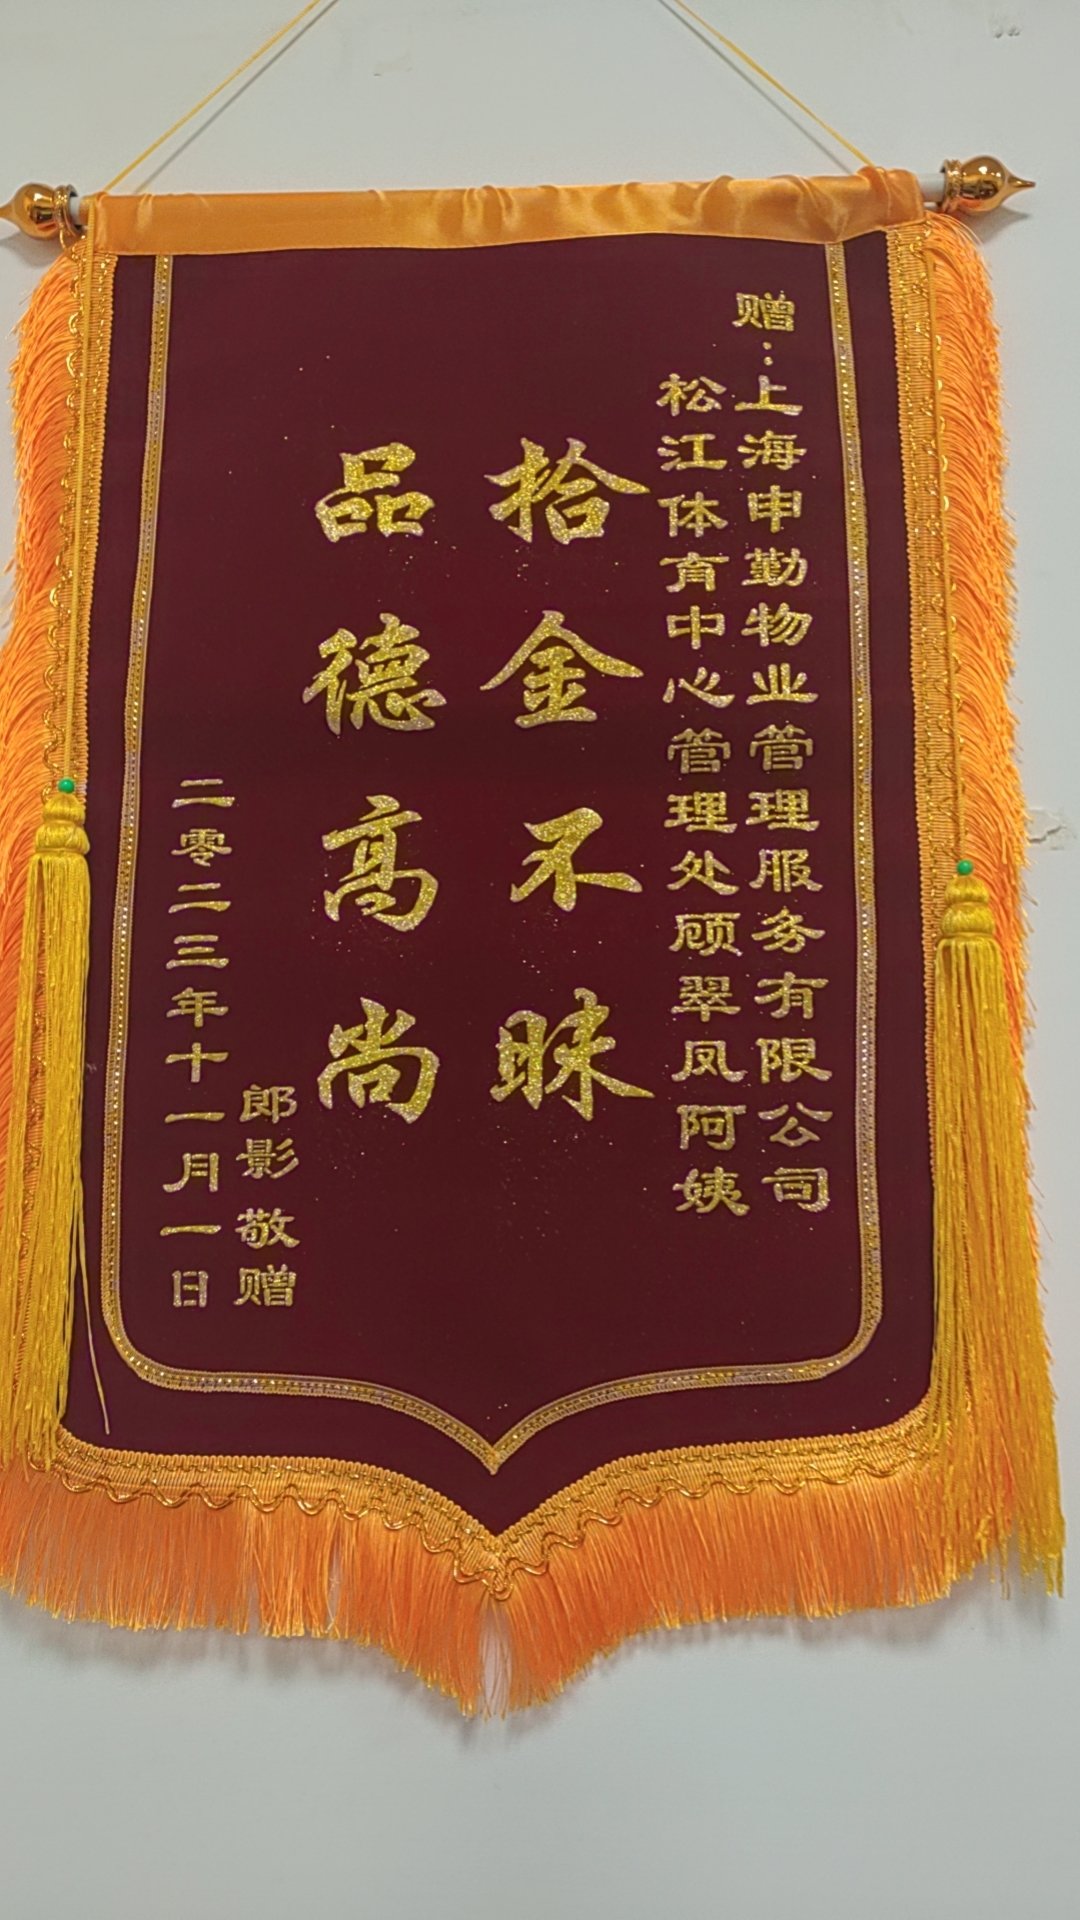 赠：上海申勤物业管理服务有限公司
松江体育中心管理处顾翠凤阿姨
拾金不昧
品德高尚
郎影敬赠
二零二三年十一月一日